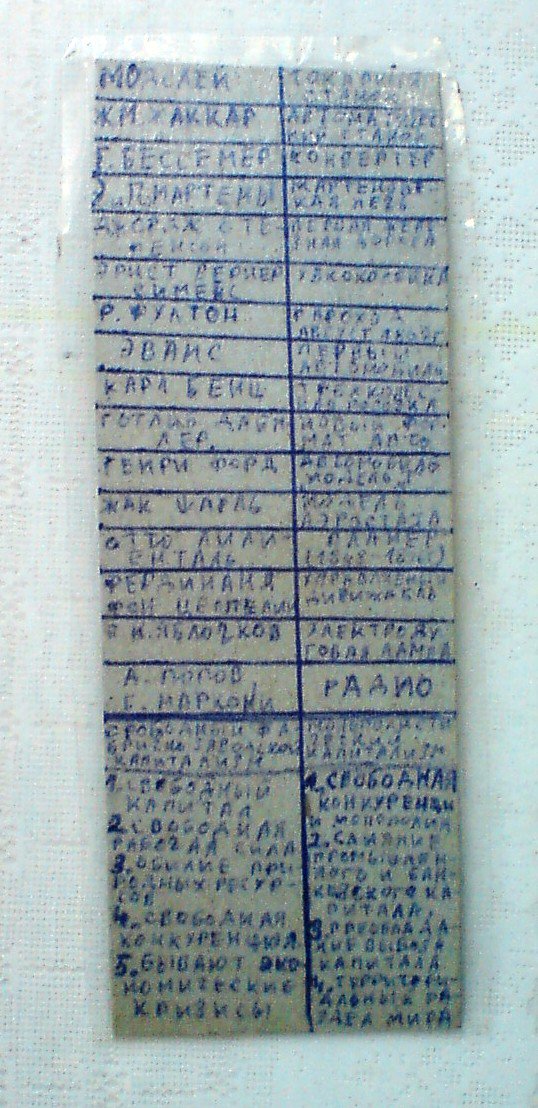 МОДСЛЕЙ
ТОКАРНЫЙ
СТАНОК
Ж.М. ЖАККАР
АВТОМАТИЧЕС-
КИЙ СТАНОК
Г. БЕССЕМЕР
КОНВЕРТЕР
П. МАРТЕНЫ
МАРТЕНОВС-
КАЯ ПЕЧЬ
ДЖОРДЖ СТЕ-
ФЕНСОН
ПЕРВАЯ ЖЕЛЕ-
ДОРОГА
ЭРНСТ ВЕРНЕР
СИМЕНС
УЗКОКОЛЕЙКА
Р. ФУЛТОН
ПАРОХОД
ЭВАНС
ПЕРВЫЙ
АВТОМОБИЛЬ
КАРЛ БЕНЦ
ГОТЛИБ ДАЙМ
ЛЕР
НОВЫЙ
ГЕНРИ ФОРД
АВТОМОБИЛЬ
ЖАК ШАРЛЬ
МОДЕЛЬ
АЭРОСТАТА
ОТТО ЛИЛИ-
ЕНТАЛЬ
ПЛАНЕР
ФЕРДИНАНД
ФОН ЦЕППЕЛИН
УПРАВЛЯЕМЫЙ
ДИРИЖАБЛЬ
Н. ЯБЛОЧКОВ
ЭЛЕКТРОДУ
ГОВАЯ ЛАМПА
А. ПОПОВ,
Г. МАРКОНИ
РАДИО
СВОБОДНЫЙ ФА
КАПИТАЛИЗМ
КАПИТАЛИЗМ
1. СВОБОДНЫЙ
КАПИТАЛ
2. СВОБОДНАЯ
РАБОЧАЯ СИЛА
3. ОБИЛИЕ ПРИ
РОДНЫХ РЕСУР-
СОВ
4. СВОБОДНАЯ
КОНКУРЕНЦИЯ
5. БЫВАЮТ ЭКО
НОМИЧЕСКИЕ
КРИЗИСЫ
1. СВОБОДНАЯ
КОНКУРЕНЦИ
И МОНОПОЛИЯ
2. СЛИЯНИЕ
ПРОМЫШЛЕН-
НОГО И БАН-
КОВСКОГО КА-
ПИТАЛА.
3. ПРЕОБЛАДА-
НИЕ ВЫВОЗА
КАПИТАЛА
4. ТЕРРИТОРИ-
АЛЬНЫХ РА
ЗДЕЛ МИРА